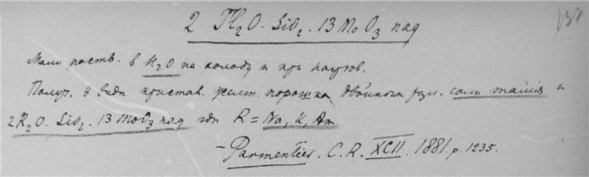 2 Tl₂O. SiO₂. 13 MoO₃ aq
Мало раств. в H₂O на холоду и при нагрев.
Получ. в виде кристал. желт. порошка двойным разл. соли таллия и
2R₂O. SiO₂. 13 MoO₃ aq где R = Na, K, Am
– Parmentier. C. R. XCII. 1881. p. 1235.